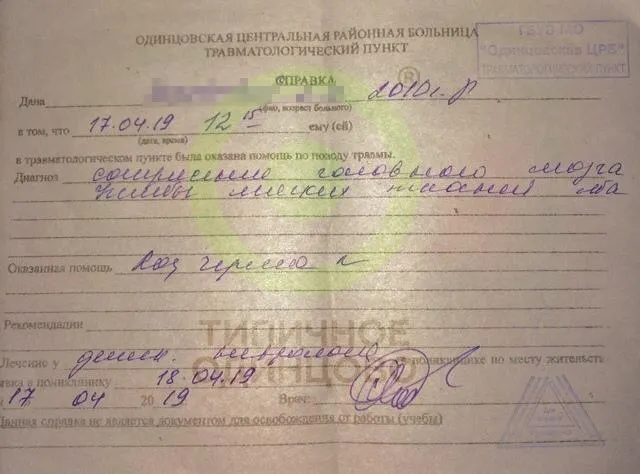 ОДИНЦОВСКАЯ ЦЕНТРАЛЬНАЯ РАЙОННАЯ БОЛЬНИЦА
ТРАВМАТОЛОГИЧЕСКИЙ ПУНКТ
ГБУЗ МО
"Одинцовская ЦРБ"
ТРАВМАТОЛОГИЧЕСКИЙ ПУНКТ
СПРАВКА
Дана 2010 г.р
(фио, возраст больного)
в том, что 17.04.19 12 15 ему (ей)
(дата, время)
в травматологическом пункте была оказана помощь по поводу травмы.
Диагноз сотрясение головного мозга
ушибы мягких тканей лба
Оказанная помощь черепа
Рекомендации
ТИПИЧНОЕ
ОДИНЦОВО
Лечение у детск. невролога в поликлинике по месту жительст
явка в поликлинику 18.04.19
17 04 2019 Врач:
Данная справка не является документом для освобождения от работы (учебы)